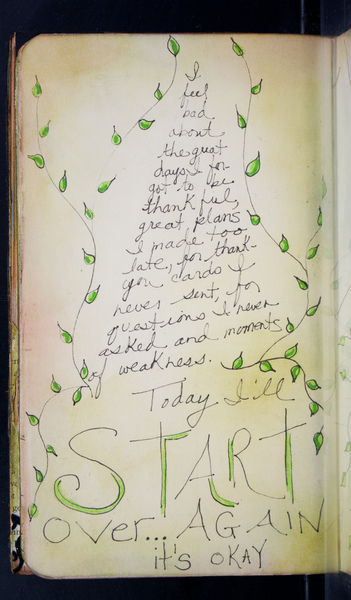 I
feel
bad
about
the great
days I for-
got to be
thankful,
great plans
I made too
late, for thank-
you cards I
never sent, for
questions I never
asked and moments
of weakness.
Today I'll
START
OVER... AGAIN
it's OKAY